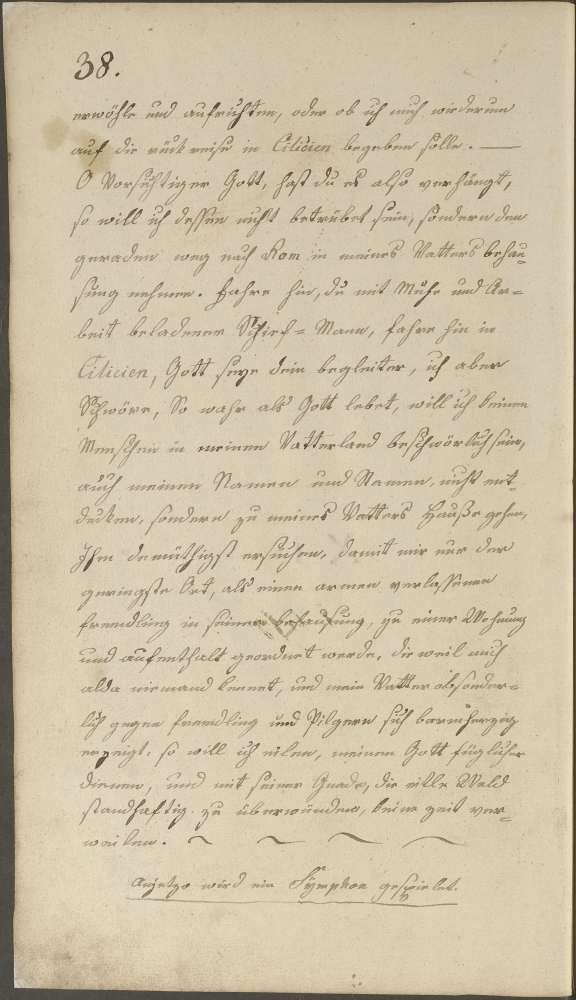 38.
erwöhle und aufrichten, oder ob ich mich wiederum
auf die rükreise in Cilicien begeben solle. —
O Vorsichtiger Gott, hast du es also verhängt,
so will ich dessen nicht betrübet sein, sondern den
geraden weg nach Rom in meines Vatters behau=
sung nehmen. Fahre hin, du mit Mühe und Ar=
beit beladener Schief=Mann, fahre hin in
Cilicien, Gott seye dein begleiter, ich aber
Schwöre, So wahr als Gott lebet, will ich keinen
Menschen in meinen Vatterland beschwörlich sein,
auch meinen Namen und Stamen, nicht ent-
decken, sondern zu meines Vatters Hauße gehen,
Ihm demüthigst ersuchen, damit mir nur der
geringste Ort, als einen armen verlassenen
fremdling in seiner behausung, zu einer Wohnung
und aufenthalt geordnet werde, die weil mich
alda niemand kennet, und mein Vatter absonder=
lich gegen fremdling und Pilgern sich barmherzig
erzeigt. so will ich eilen, meinen Gott füglicher
dienen, und mit seiner Gnade, die eitle Weld
standhaftig zu überwünden, keine zeit ver=
weilen. ~ ~ ~ ~
Anjetzo wird ein Symphon gespielet.